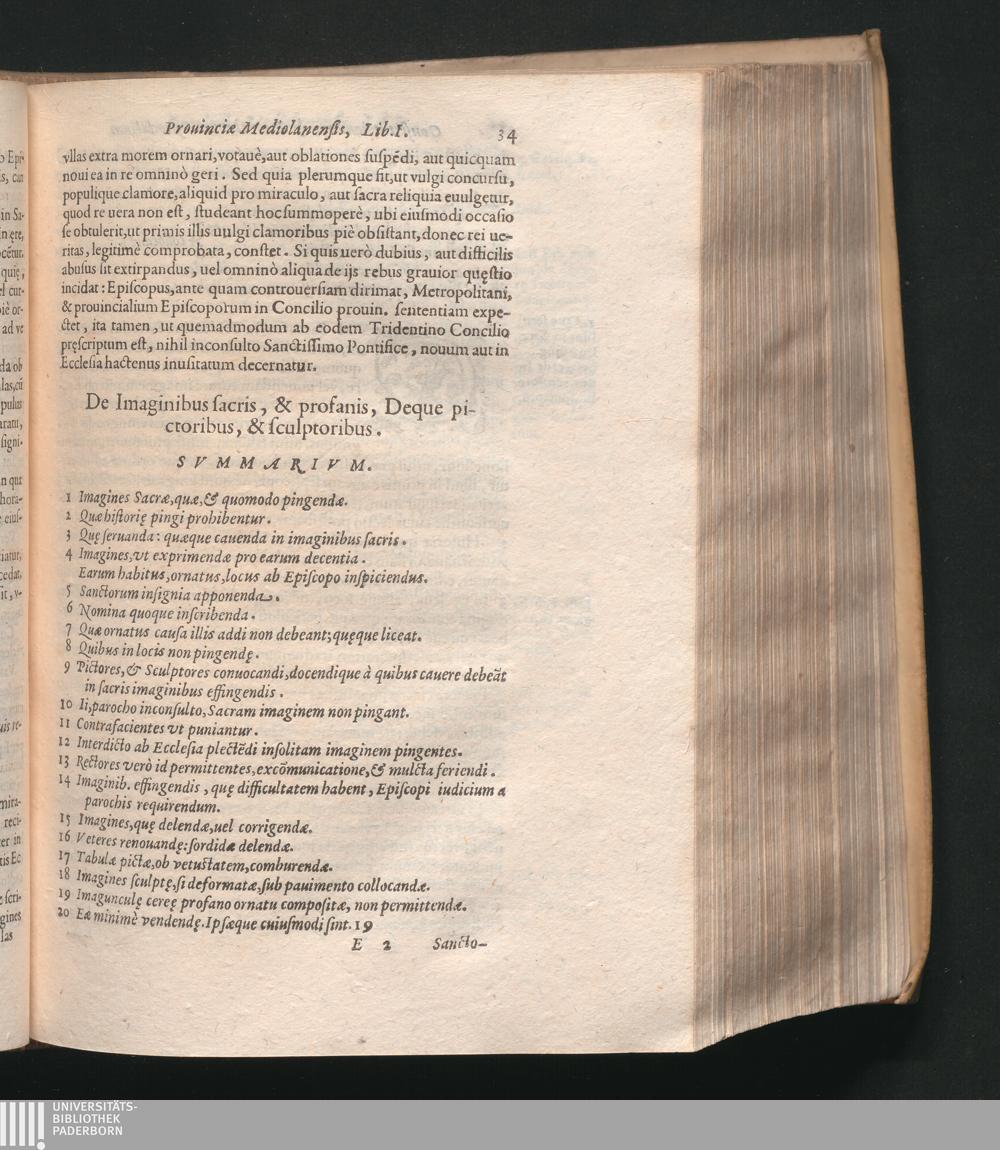 Prouinciæ Mediolanensis, Lib.I. 34
vllas extra morem ornari, votauè, aut oblationes suspẽdi, aut quicquam
noui ea in re omninò geri. Sed quia plerumque fit, ut vulgi concursu,
populique clamore, aliquid pro miraculo, aut sacra reliquia euulgetur,
quod re uera non est, studeant hoc summoperè, ubi eiusmodi occasio
se obtulerit, ut primis illis uulgi clamoribus piè obsistant, donec rei ue-
ritas, legitimè comprobata, constet. Si quis uerò dubius, aut difficilis
abusus sit extirpandus, uel omninò aliqua de ijs rebus grauior quęstio
incidat: Episcopus, ante quam controuersiam dirimat, Metropolitani,
& prouincialium Episcoporum in Concilio prouin. sententiam expe-
ctet, ita tamen, ut quemadmodum ab eodem Tridentino Concilio
pręscriptum est, nihil inconsulto Sanctissimo Pontifice, nouum aut in
Ecclesia hactenus inusitatum decernatur.
De Imaginibus sacris, & profanis, Deque pi-
ctoribus, & sculptoribus.
SVMMARIVM.
1 Imagines Sacræ, quæ, & quomodo pingendæ.
2 Quæ historię pingi prohibentur.
3 Quę seruanda: quæque cauenda in imaginibus sacris.
4 Imagines, vt exprimendæ pro earum decentia.
Earum habitus, ornatus, locus ab Episcopo inspiciendus.
5 Sanctorum insignia apponenda.
6 Nomina quoque inscribenda.
7 Quæ ornatus causa illis addi non debeant; quęque liceat.
8 Quibus in locis non pingendę.
9 Pictores, & Sculptores conuocandi, docendique à quibus cauere debeãt
in sacris imaginibus effingendis.
10 Ii, parocho inconsulto, Sacram imaginem non pingant.
11 Contrafacientes vt puniantur.
12 Interdicto ab Ecclesia plectẽdi insolitam imaginem pingentes.
13 Rectores verò id permittentes, excõmunicatione, & mulcta feriendi.
14 Imaginib. effingendis, quę difficultatem habent, Episcopi iudicium a
parochis requirendum.
15 Imagines, quę delendæ, uel corrigendæ.
16 Veteres renouandę: sordidæ delendæ.
17 Tabulæ pictæ, ob vetustatem, comburendæ.
18 Imagines sculptę, si deformatæ, sub pauimento collocandæ.
19 Imagunculę cereę profano ornatu compositæ, non permittendæ.
20 Eæ minimè vendendę. Ipsæque cuiusmodi sint. 19
E 2 Sancto-
UNIVERSITÄTS-
BIBLIOTHEK
PADERBORN